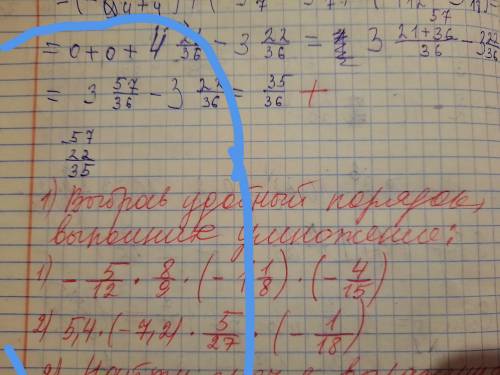 = 0 + 0 + 4 21/36 - 3 22/36 = 3 21+36/36 - 3 22/36
57
= 3 57/36 - 3 22/36 = 35/36 +
57
22
35
1) Выбрав удобный порядок,
выполните умножение:
1) - 5/12 · 8/9 · (-1 1/8) · (- 4/15)
2) 5,4 · (-7,2) · 5/27 · (- 1/18)